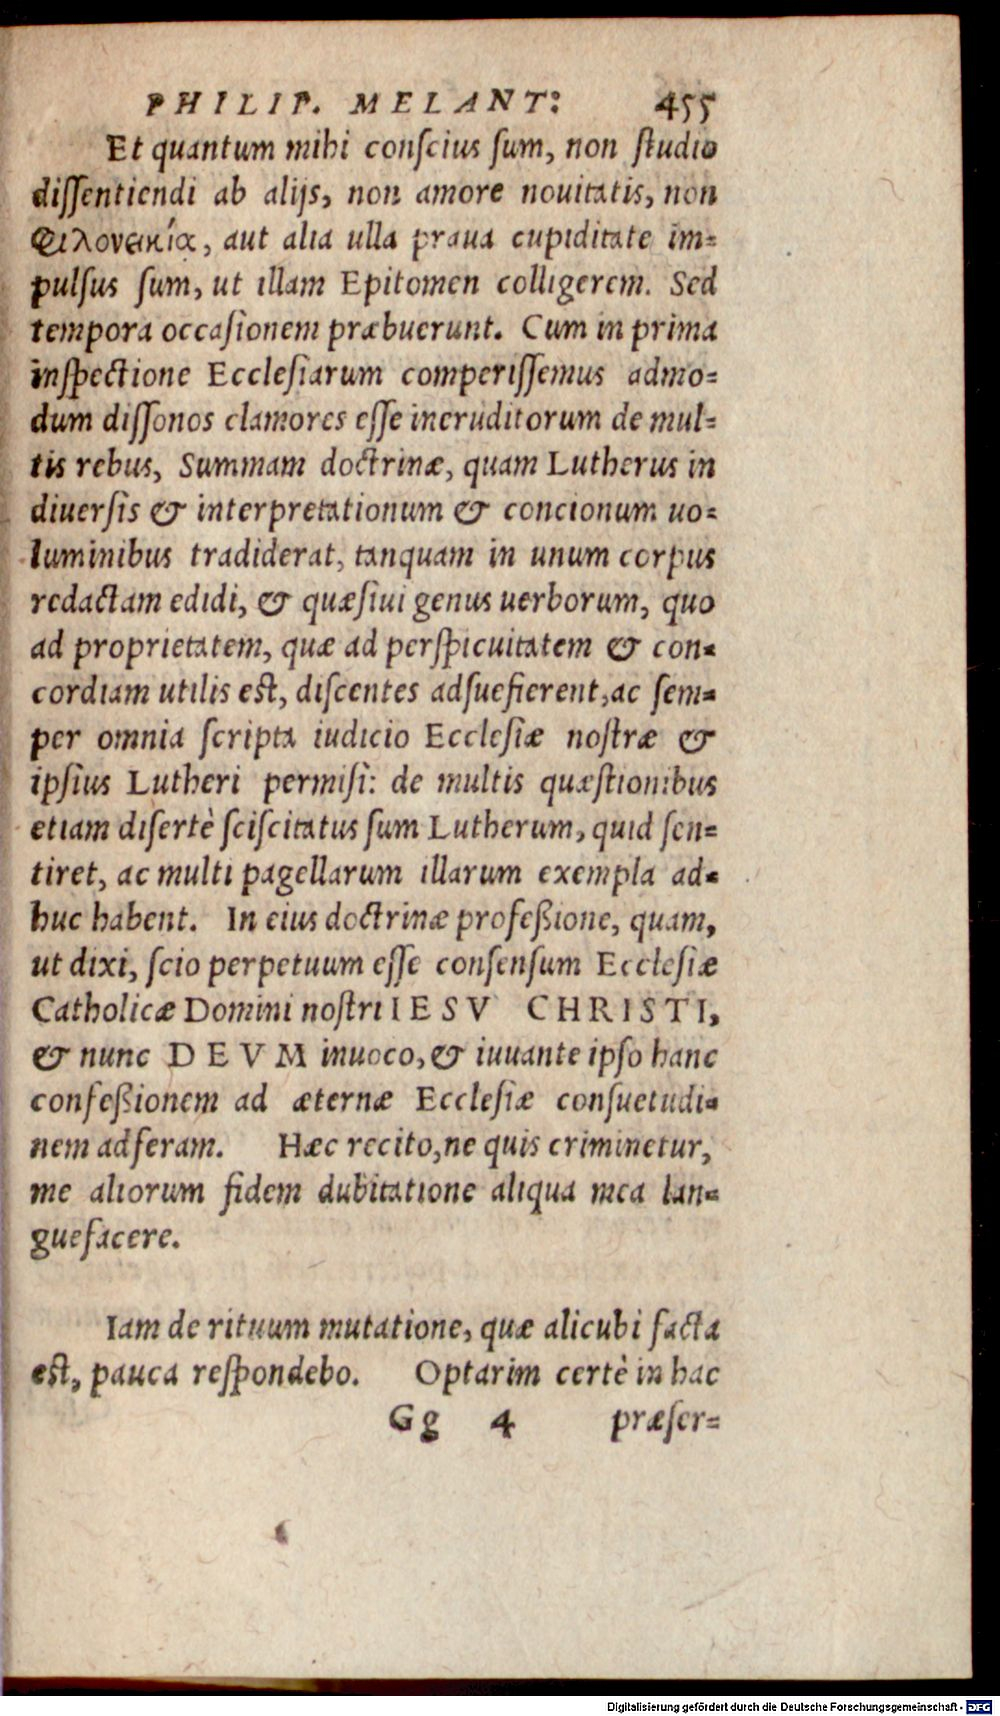 PHILIP. MELANT: 455
Et quantum mihi conſcius ſum, non ſtudio
diſſentiendi ab alijs, non amore nouitatis, non
Φιλονεικία, aut alia ulla praua cupiditate im=
pulſus ſum, ut illam Epitomen colligerem. Sed
tempora occaſionem præbuerunt. Cum in prima
inſpectione Eccleſiarum comperiſſemus admo=
dum diſſonos clamores eſſe ineruditorum de mul=
tis rebus, Summam doctrinæ, quam Lutherus in
diuerſis & interpretationum & concionum uo=
luminibus tradiderat, tanquam in unum corpus
redactam edidi, & quæſiui genus uerborum, quo
ad proprietatem, quæ ad perſpicuitatem & con=
cordiam utilis eſt, diſcentes adſuefierent, ac ſem=
per omnia ſcripta iudicio Eccleſiæ noſtræ &
ipſius Lutheri permiſi: de multis quæſtionibus
etiam diſertè ſciſcitatus ſum Lutherum, quid ſen=
tiret, ac multi pagellarum illarum exempla ad=
huc habent. In eius doctrinæ profeßione, quam,
ut dixi, ſcio perpetuum eſſe conſenſum Eccleſiæ
Catholicæ Domini noſtri IESV CHRISTI,
& nunc DEVM inuoco, & iuuante ipſo hanc
confeßionem ad æternæ Eccleſiæ conſuetudi=
nem adferam. Hæc recito, ne quis criminetur,
me aliorum fidem dubitatione aliqua mea lan=
guefacere.
Iam de rituum mutatione, quæ alicubi facta
eſt, pauca reſpondebo. Optarim certè in hac
Gg 4 præſer=
Digitalisierung gefördert durch die Deutsche Forschungsgemeinschaft - DFG